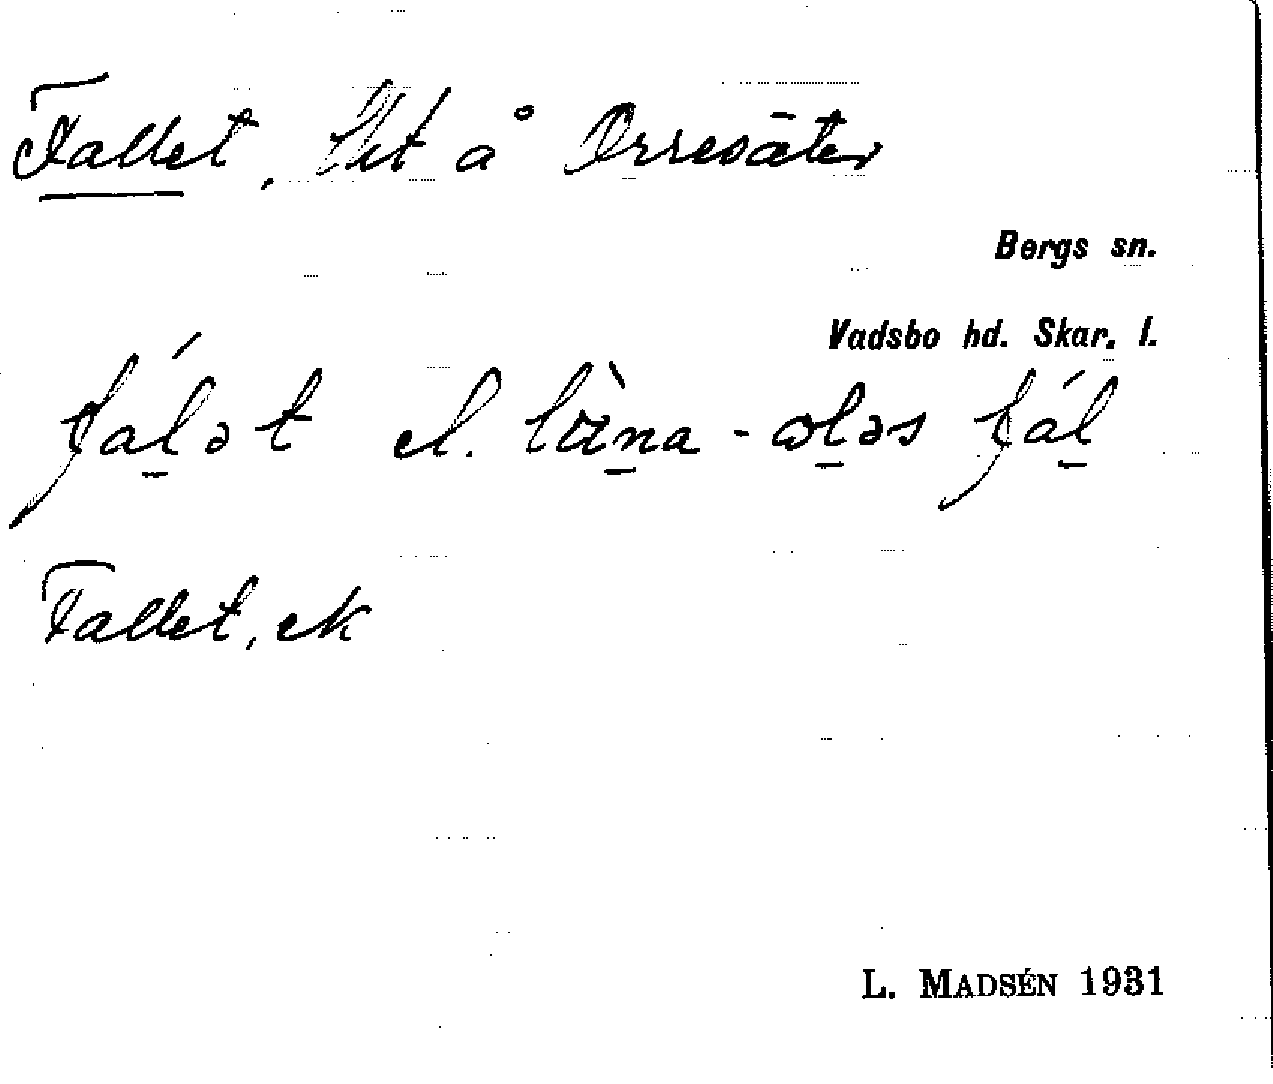 Fallet, lht å Orresäter
Bergs sn.
Vadsbo hd. Skar. l.
fáḻət el. ḻas fáḻ
Fallet, ek
L. MADSÉN 1931